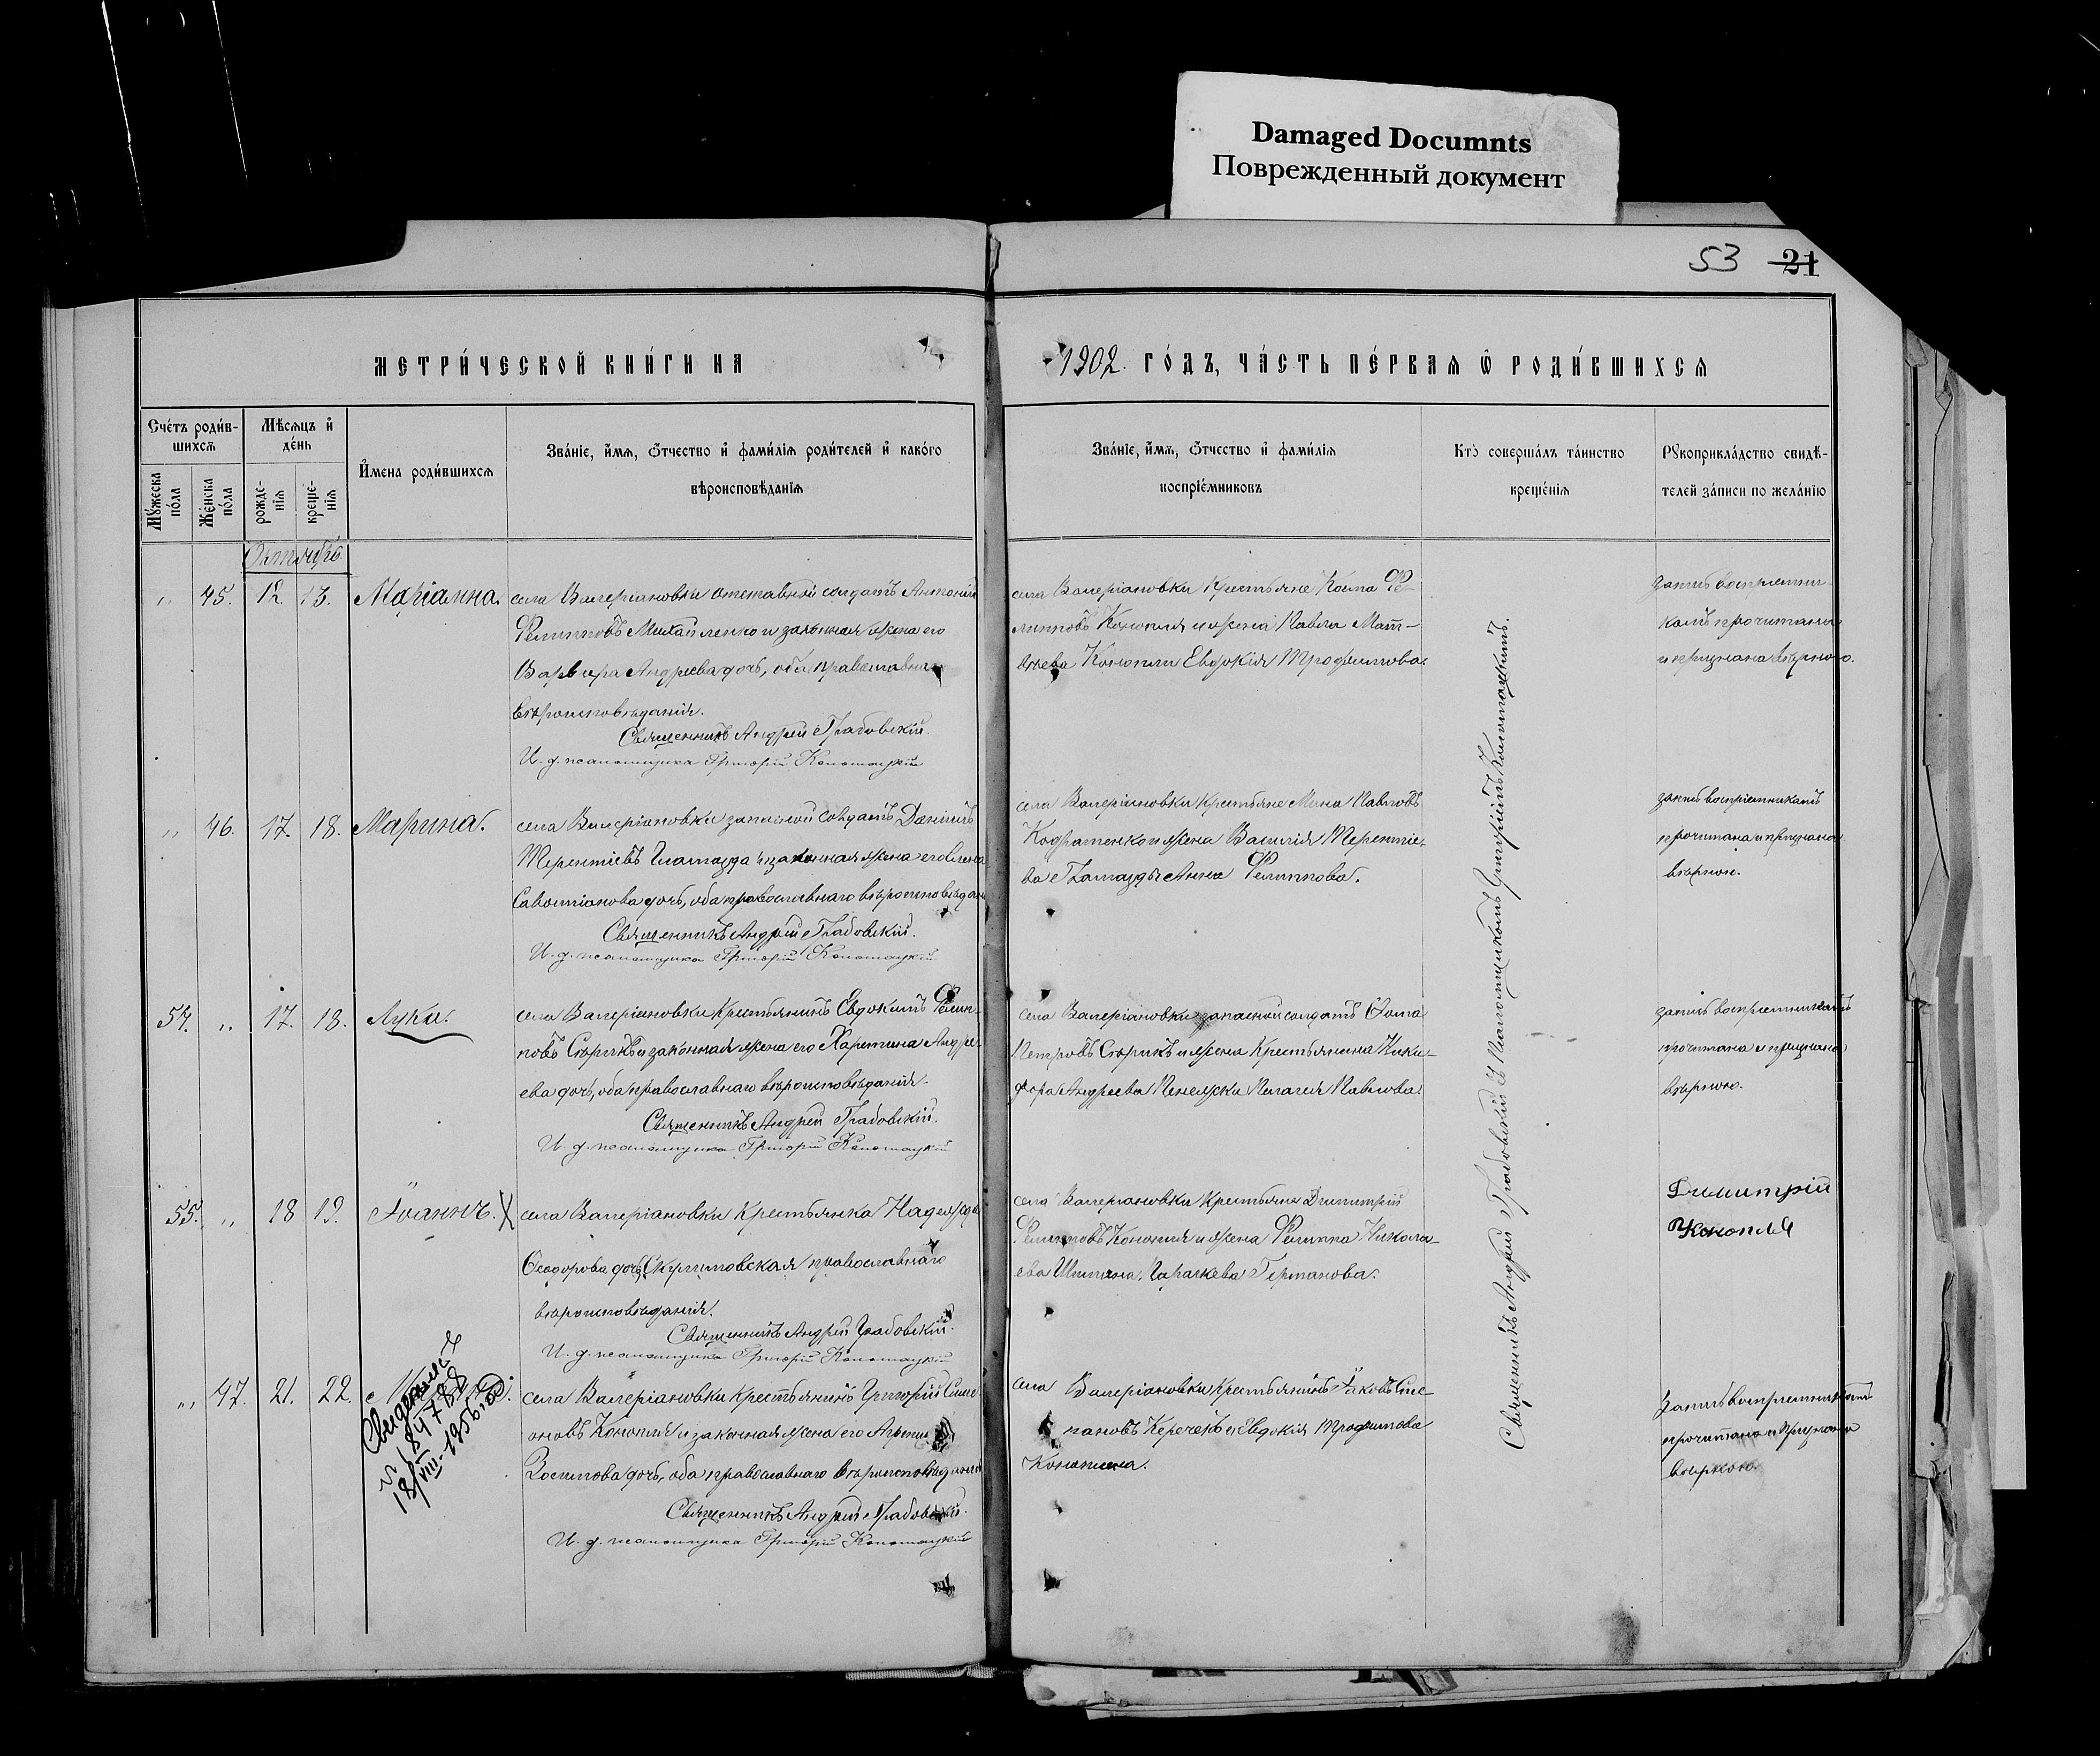 Damaged Documnts
Поврежденный документ
53 21
МЕТРИ́ЧЕСКОЙ КНИ́ГИ НА
1902. ГО́ДЪ, ЧА́СТЬ ПЕ́РВАЯ Ѡ РОДИ́ВШИХСЯ
Сче́тъ роди́в-
шихся
Мѣсяцъ и
де́нь
Имена роди́вшихся
Зва́ніе, имя, отчество и фами́лія роди́телей и како́го
вѣроисповѣданія
Му́жеска по́ла
Же́нска по́ла
рожде-
нія
креще-
нія
Зва́ніе, имя, отчество и фами́лія
воспріе́мниковъ
Кто̀ соверша́лъ та́инство
креще́нія
Рукоприкла́дство свидѣ-
телей за́писи по жела́нію
Октябрь
„ 45. 12. 13. Маріанна.
села Валеріановки отставной солдатъ Антоній
Филипповъ Михайленко и законная жена его
Варвара Андреева дочь, оба православнаго
вѣроисповѣданія.
Священникъ Андрей Грабовскій.
И. д. псаломщика Григорій Кономацкій
села Валеріановки Крестьяне Косма Фи-
липповъ Конопля и жена Павла Мат-
вѣева Конопли Евдокія Трофимова.
запись воспріемни-
камъ прочитана
и признана вѣрною.
„ 46. 17. 18. Марина.
села Валеріановки запасной солдатъ Даніилъ
Терентіевъ и законная жена его Елена
Савостіанова дочь, оба православнаго вѣроисповѣданія
Священникъ Андрей Грабовскій.
И. д. псаломщика Григорій Кономацкій
села Валеріановки Крестьяне Мина Павловъ
Кондратенко и жена Василія Терентіе-
ва Анна Филиппова.
запись воспріемникамъ
прочитана и признана
вѣрною.
54. „ 17. 18. Лука.
села Валеріановки Крестьянинъ Евдокимъ Филип-
повъ Старикъ и законная жена его Харитина Андре-
ева дочь, оба православнаго вѣроисповѣданія.
Священникъ Андрей Грабовскій.
И. д. псаломщика Григорій Кономацкій
села Валеріановки запасной солдатъ Ѳома
Петровъ Старикъ и жена Крестьянина Ники-
фора Андреева Пелагея Павлова.
запись воспріемникамъ
прочитана и признана
вѣрною.
55. „ 18 19. Іоаннъ. X
села Валеріановки Крестьянка Надежда
Ѳеодорова дочь православнаго
вѣроисповѣданія.
Священникъ Андрей Грабовскій.
И. д. псаломщика Григорій Кономацкій
села Валеріановки Крестьяне Димитрій
Филипповъ Конопля и жена Филиппа Никола-
ева Германова.
Димитрій
Конопля
„ 47. 21. 22.
села Валеріановки Крестьянинъ Григорій Симе-
оновъ Конопля и законная жена его
Зосимова дочь, оба православнаго вѣроисповѣданія
Священникъ Андрей Грабовскій.
И. д. псаломщика Григорій Кономацкій
села Валеріановки Крестьянинъ Іаковъ Сте-
пановъ и Евдокія Трофимова
запись воспріемникамъ
прочитана и признана
вѣрною.
18/VIII-1956
Священникъ Андрей Грабовскій съ Псаломщикомъ Григоріемъ Кономацкимъ.